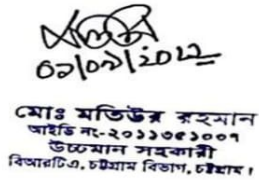 ০৯/০৯/২০২৫
মোঃ মতিউর রহমান
আইডি নং-২০১১৩৫১০০৭
উচ্চমান সহকারী
বিআরটিএ, চট্টগ্রাম বিভাগ, চট্টগ্রাম।